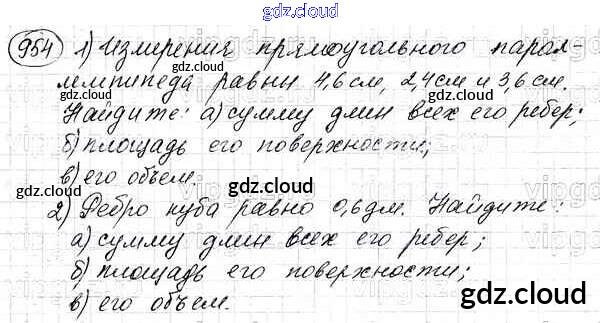 gdz.cloud
954 1) Измерения прямоугольного парал-
лелепипеда равны 4,6 см, 2,4 см и 3,6 см.
gdz.cloud gdz.cloud
Найдите: а) сумму длин всех его ребер;
б) площадь его поверхности;
в) его объем.
gdz.cloud
2) Ребро куба равно 0,6 дм. Найдите:
gdz.cloud
а) сумму длин всех его ребер;
б) площадь его поверхности;
в) его объем.
gdz.cloud